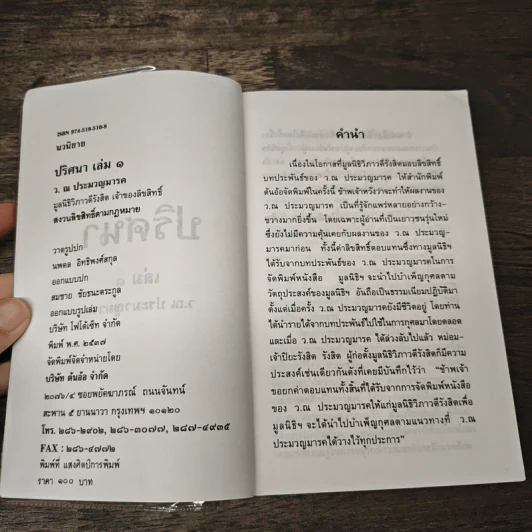 ISBN 974-518-510-8
นวนิยาย
ปริศนา เล่ม ๑
ว. ณ ประมวญมารค
มูลนิธิวิภาวดีรังสิต เจ้าของลิขสิทธิ์
สงวนลิขสิทธิ์ตามกฎหมาย
วาดรูปปก
นพดล อิทธิพงศ์สกุล
ออกแบบปก
สมชาย ชัยธนะตระกูล
ออกแบบรูปเล่ม
บริษัท โฟโต้เซ้ท จำกัด
พิมพ์ พ.ศ. ๒๕๓๗
จัดพิมพ์จัดจำหน่ายโดย
บริษัท ต้นอ้อ จำกัด
๒๐๗๖/๔ ซอยพยัคฆาภรณ์ ถนนจันทน์
สะพาน ๕ ยานนาวา กรุงเทพฯ ๑๐๑๒๐
โทร. ๒๘๖-๒๙๐๒, ๒๘๖-๓๐๗๗, ๒๘๗-๔๙๓๕
FAX : ๒๘๖-๔๗๗๒
พิมพ์ที่ แสงศิลป์การพิมพ์
ราคา ๑๐๐ บาท
คำนำ
เนื่องในโอกาสที่มูลนิธิวิภาวดีรังสิตมอบลิขสิทธิ์
บทประพันธ์ของ ว. ณ ประมวญมารค ให้สำนักพิมพ์
ต้นอ้อจัดพิมพ์ในครั้งนี้ ข้าพเจ้าหวังว่าจะทำให้ผลงานของ
ว. ณ ประมวญมารค เป็นที่รู้จักแพร่หลายอย่างกว้าง-
ขวางมากยิ่งขึ้น โดยเฉพาะผู้อ่านที่เป็นเยาวชนรุ่นใหม่
ซึ่งยังไม่มีความคุ้นเคยกับผลงานของ ว. ณ ประมวญ-
มารคมาก่อน ทั้งนี้ค่าลิขสิทธิ์ตอบแทนซึ่งทางมูลนิธิฯ
ได้รับจากบทประพันธ์ของ ว. ณ ประมวญมารคในการ
จัดพิมพ์หนังสือ มูลนิธิฯ จะนำไปบำเพ็ญกุศลตาม
วัตถุประสงค์ของมูลนิธิฯ อันถือเป็นธรรมเนียมปฏิบัติมา
ตั้งแต่เมื่อครั้ง ว. ณ ประมวญมารคยังมีชีวิตอยู่ โดยท่าน
ได้นำรายได้จากบทประพันธ์ไปใช้ในการกุศลมาโดยตลอด
และเมื่อ ว. ณ ประมวญมารค ได้ล่วงลับไปแล้ว หม่อม-
เจ้าปิยะรังสิต รังสิต ผู้ก่อตั้งมูลนิธิวิภาวดีรังสิตก็มีความ
ประสงค์เช่นเดียวกันดังที่เคยมีบันทึกไว้ว่า "ข้าพเจ้า
ขอยกค่าตอบแทนทั้งสิ้นที่ได้รับจากการจัดพิมพ์หนังสือ
ของ ว. ณ ประมวญมารคให้แก่มูลนิธิวิภาวดีรังสิตเพื่อ
มูลนิธิฯ จะได้นำไปบำเพ็ญกุศลตามแนวทางที่ ว. ณ
ประมวญมารคได้วางไว้ทุกประการ"